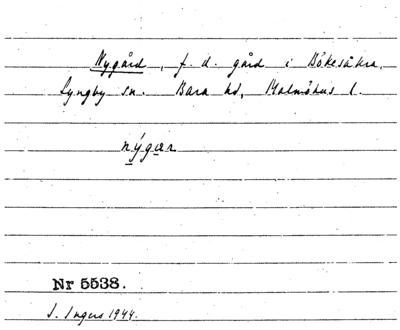 Nygård, f. d. gård i Bökesåkra,
Lyngby sn. Bara hd, Malmöhus l.
nýgær
Nr 5538.
I. Ingers 1944.